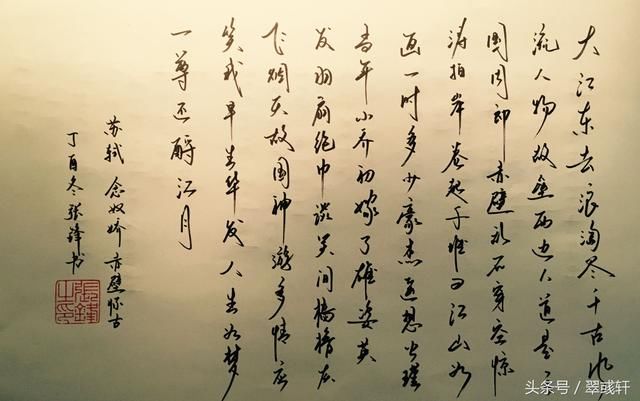 大江东去浪淘尽千古风
流人物故垒西边人道是三
国周郎赤壁乱石穿空惊
涛拍岸卷起千堆雪江山如
画一时多少豪杰遥想公瑾
当年小乔初嫁了雄姿英
发羽扇纶巾谈笑间樯橹灰
飞烟灭故国神游多情应
笑我早生华发人生如梦
一尊还酹江月
苏轼 念奴娇 赤壁怀古
丁酉冬张锋书
张锋之印
头条号 / 翠彧轩